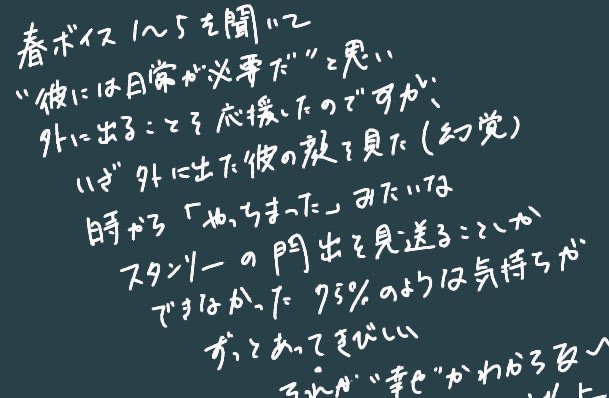 春ボイス1〜5を聞いて
"彼には日常が必要だ"と思い
外に出ることを応援したのですが、
いざ外に出た彼の顔を見た(幻覚)
時から「やっちまった」みたいな
スタンリーの門出を見送ることしか
できなかった75%のような気持ちが
ずっとあってきびしい
それが"幸せ"かわからねぇ〜